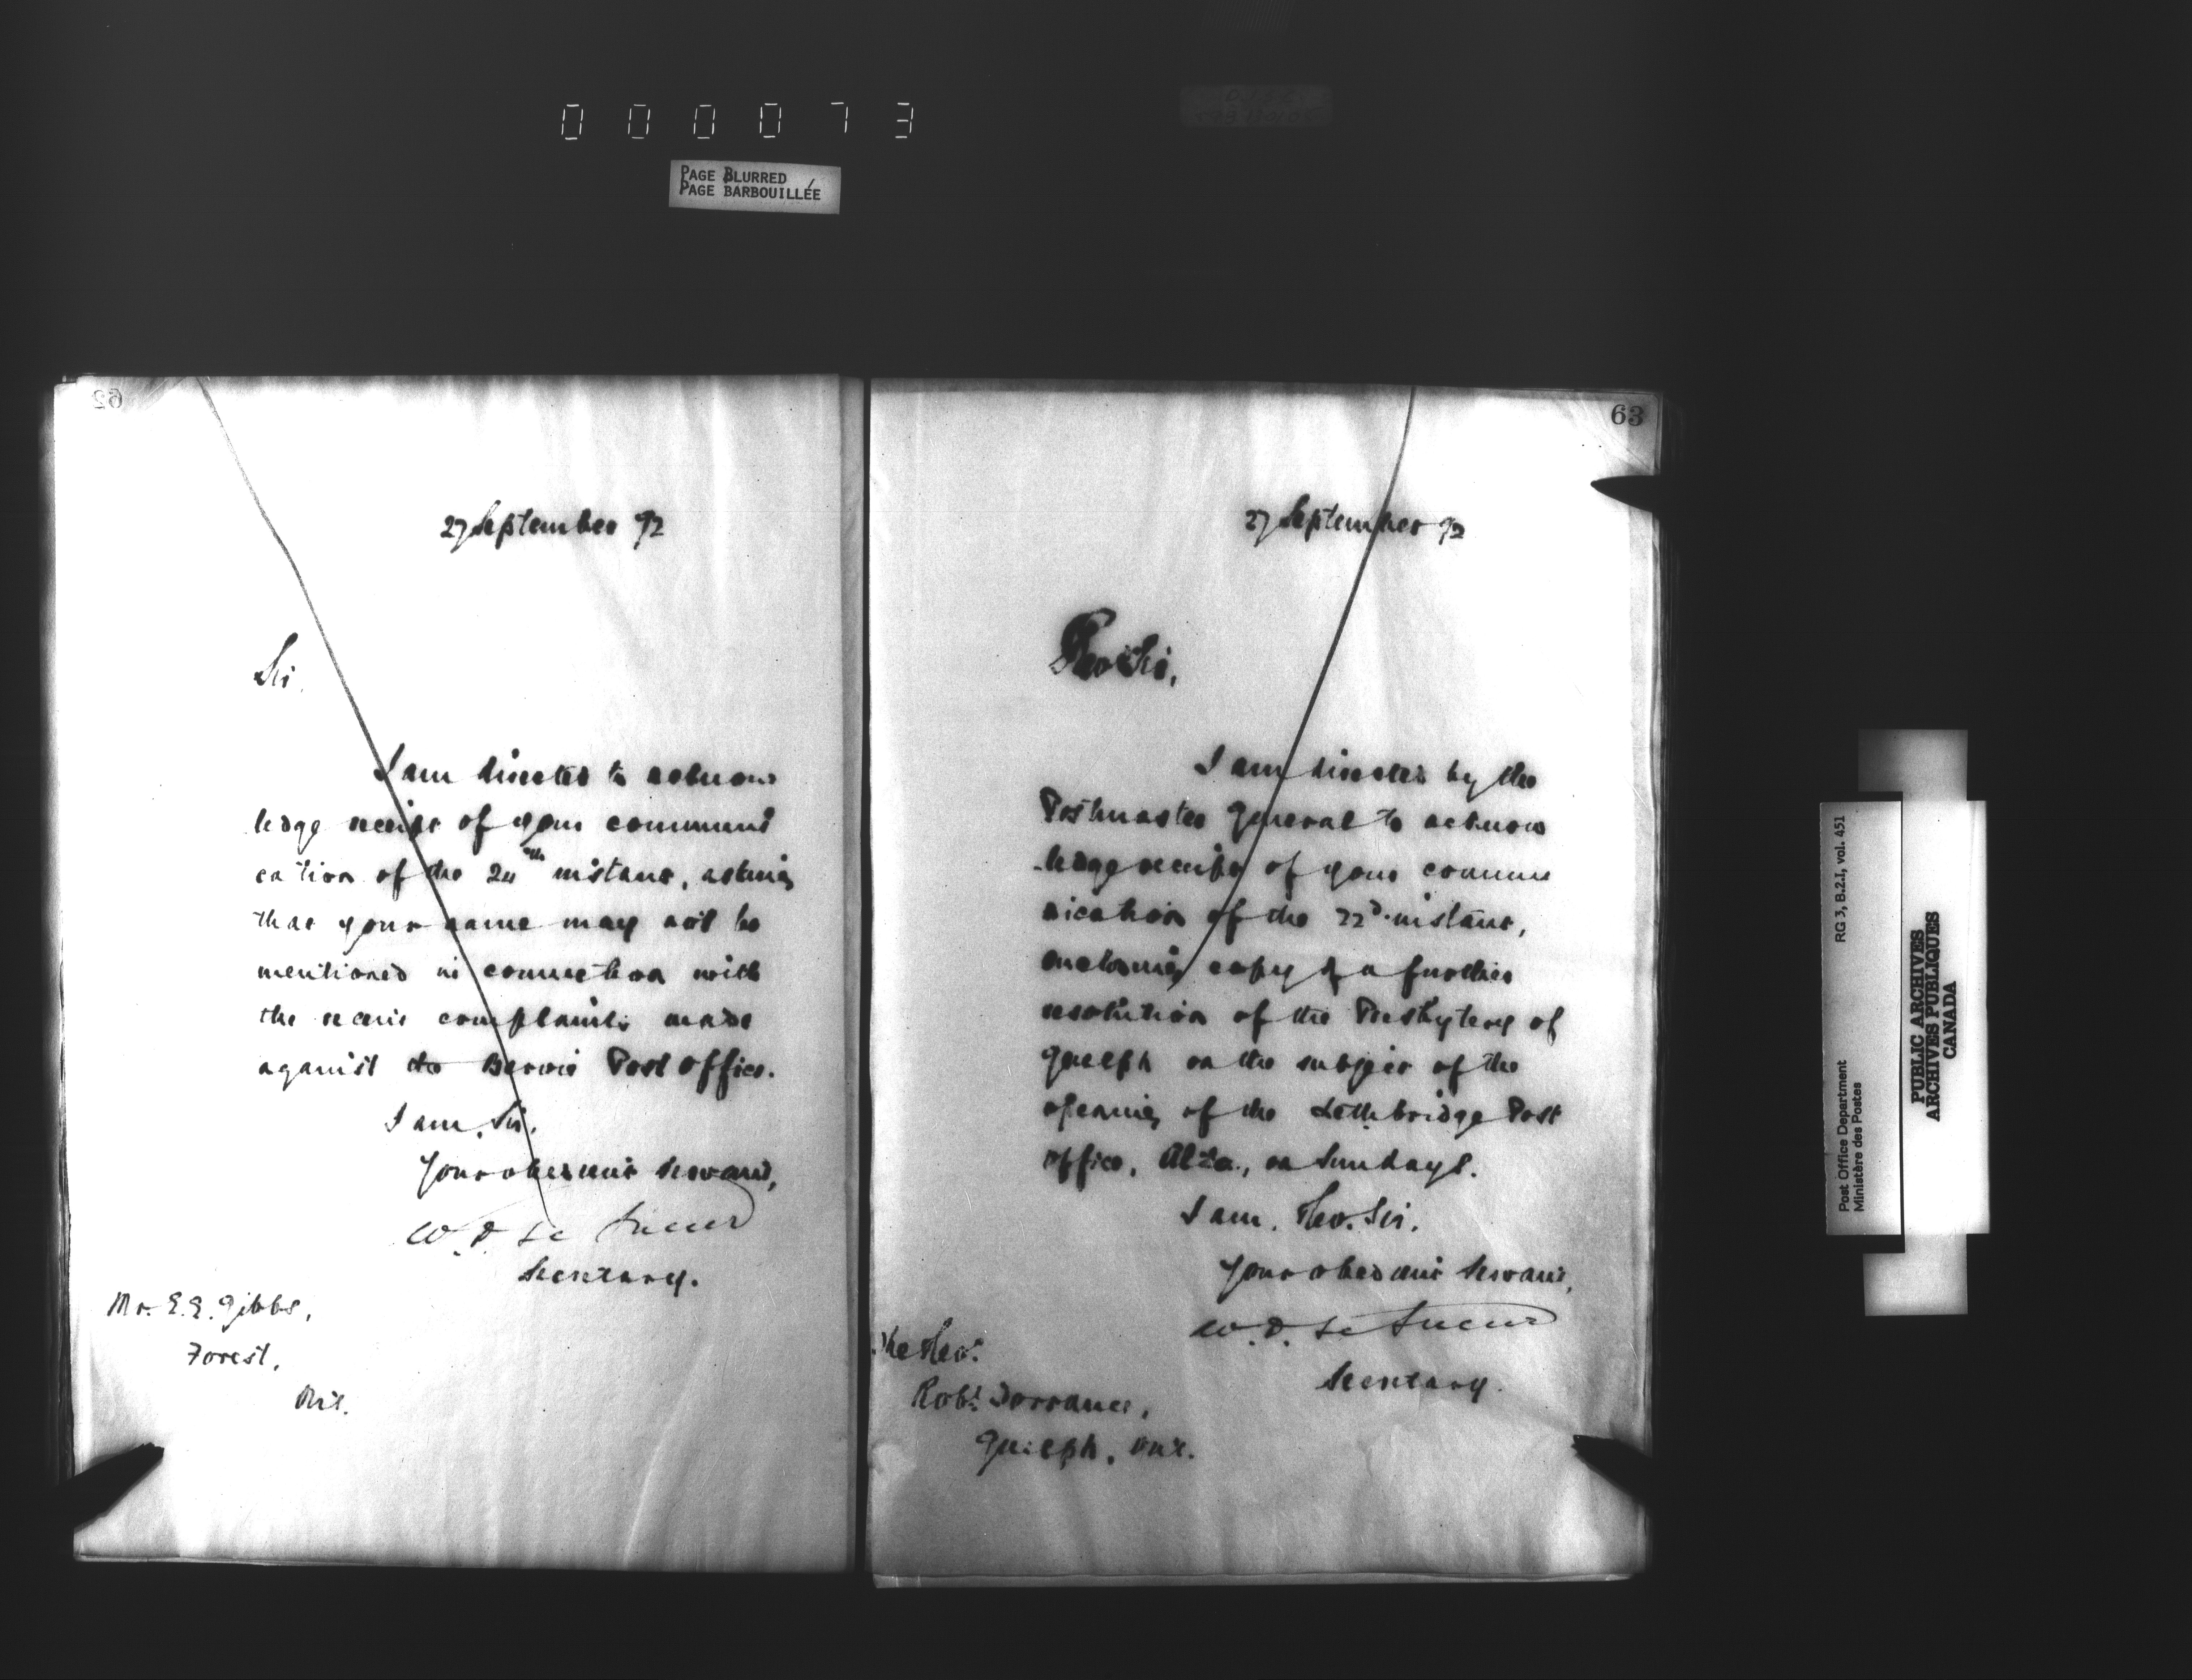 000073
PAGE BLURRED
PAGE BARBOUILLÉE
62
27 September 92
Sir,
I am directed to acknow
ledge receipt of your communi
cation of the 24th instant, asking
that your name may not be
mentioned in connection with
the recent complaints made
against the Post Office.
I am, Sir,
Your obedient Servant,
W. D. Le Sueur
Secretary.
Mr. E. E. Gibbs,
Forest,
Ont.
63
27 September 92
Rev. Sir,
I am directed by the
Postmaster General to acknow
ledge receipt of your commu
nication of the 22d. instant,
enclosing copy of a further
resolution of the Presbytery of
Guelph on the subject of the
opening of the Lethbridge Post
Office, Alta., on Sundays.
I am, Rev. Sir,
Your obedient Servant,
W. D. Le Sueur
Secretary.
The Rev.
Robt. Torrance,
Guelph, Ont.
Post Office Department
Ministère des Postes
RG 3, B.2.I, vol. 451
PUBLIC ARCHIVES
ARCHIVES PUBLIQUES
CANADA